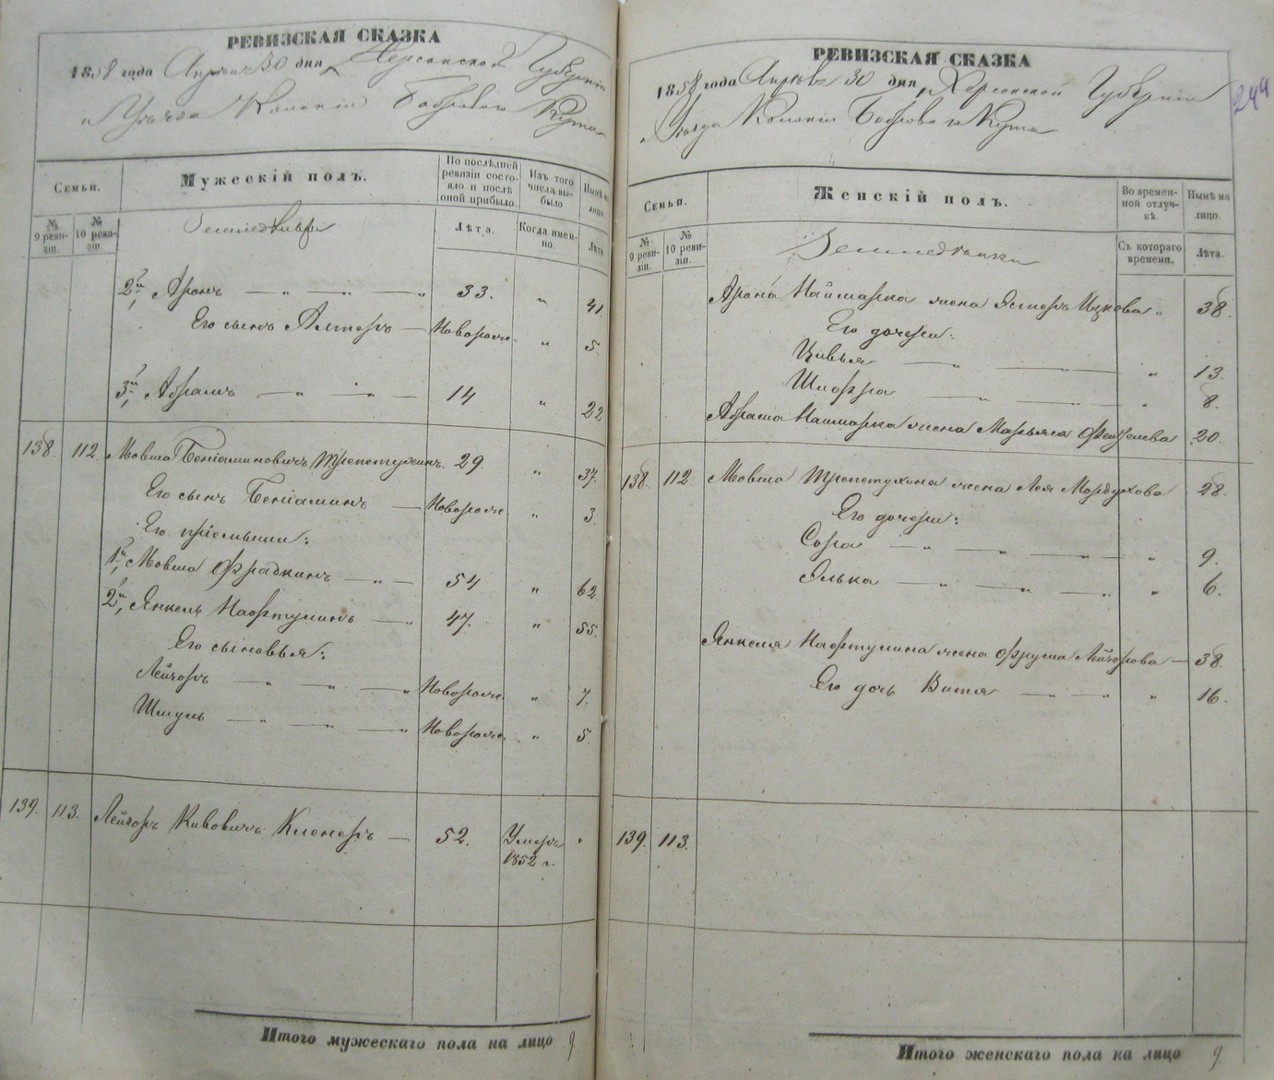 РЕВИЗСКАЯ СКАЗКА
1858 года Апреля 30 дня, Херсонской Губерніи
и Уезда Колоніи Боброваго Кута
Семьи.
Мужескій полъ.
По послѣдней ревизіи состояло и послѣ оной прибыло.
Изъ того числа выбыло
Нынѣ на лицо.
№ 9 ревизіи.
№ 10 ревизіи.
Лѣта.
Когда именно.
Лѣта
Земледѣльцы
2й, Аронъ — „ — „ — „ 33. „ 41
Его сынъ Алтеръ — Новорожд. „ 5.
3й, Абрамъ — „ — „ — 14 „ 22
138. 112 Мовша Беніаминовичъ 29 „ 37.
Его сынъ Беніаминъ — Новорожд. „ 3.
Его пріемыши:
1й, Мовша Фрадкинъ — „ — 54 „ 62
2й, Янкель Нафтулинъ — „ 47. „ 55.
Его сыновья:
Лейзоръ — „ — „ — „ Новорожд. „ 7.
Шмуль — „ — „ — „ Новорожд. „ 5.
139. 113. Лейзоръ Кивовичъ — 52. Умеръ 1852 г. „
Итого мужескаго пола на лицо 9
РЕВИЗСКАЯ СКАЗКА
1858 года Апрѣля 30 дня, Херсонской Губерніи
и Уезда Колоніи Боброваго Кута
244
Семьи.
Женскій полъ.
Во временной отлучкѣ.
Нынѣ на лицо.
№ 9 ревизіи.
№ 10 ревизіи.
Съ котораго времени.
Лѣта.
Земледѣлки
Арона Наймарка жена Ицкова „ 38.
Его дочери:
Цивья — „ — „ 13.
Шифра — „ — „ 8.
Абрама Наймарка жена Марьяся 20.
138. 112. Мовша Трепетухина жена Лея Мордухова 28.
Его дочери:
Сора — „ — „ — „ 9.
Элька — „ — „ — „ 6.
Янкеля Нафтулина жена Фрума Лейзорова — 38.
Его дочь Витя — „ — „ „ 16.
139. 113.
Итого женскаго пола на лицо 9